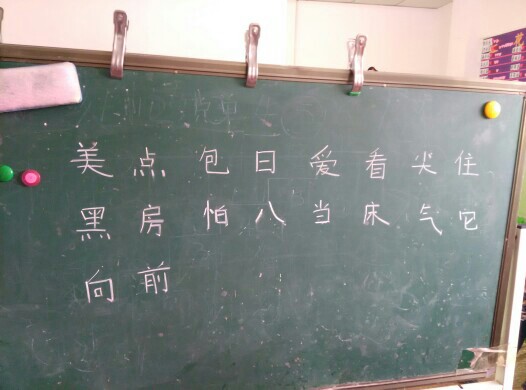 美 点 包 日 爱 看 尖 住
黑 房 怕 八 当 床 气 它
向 前